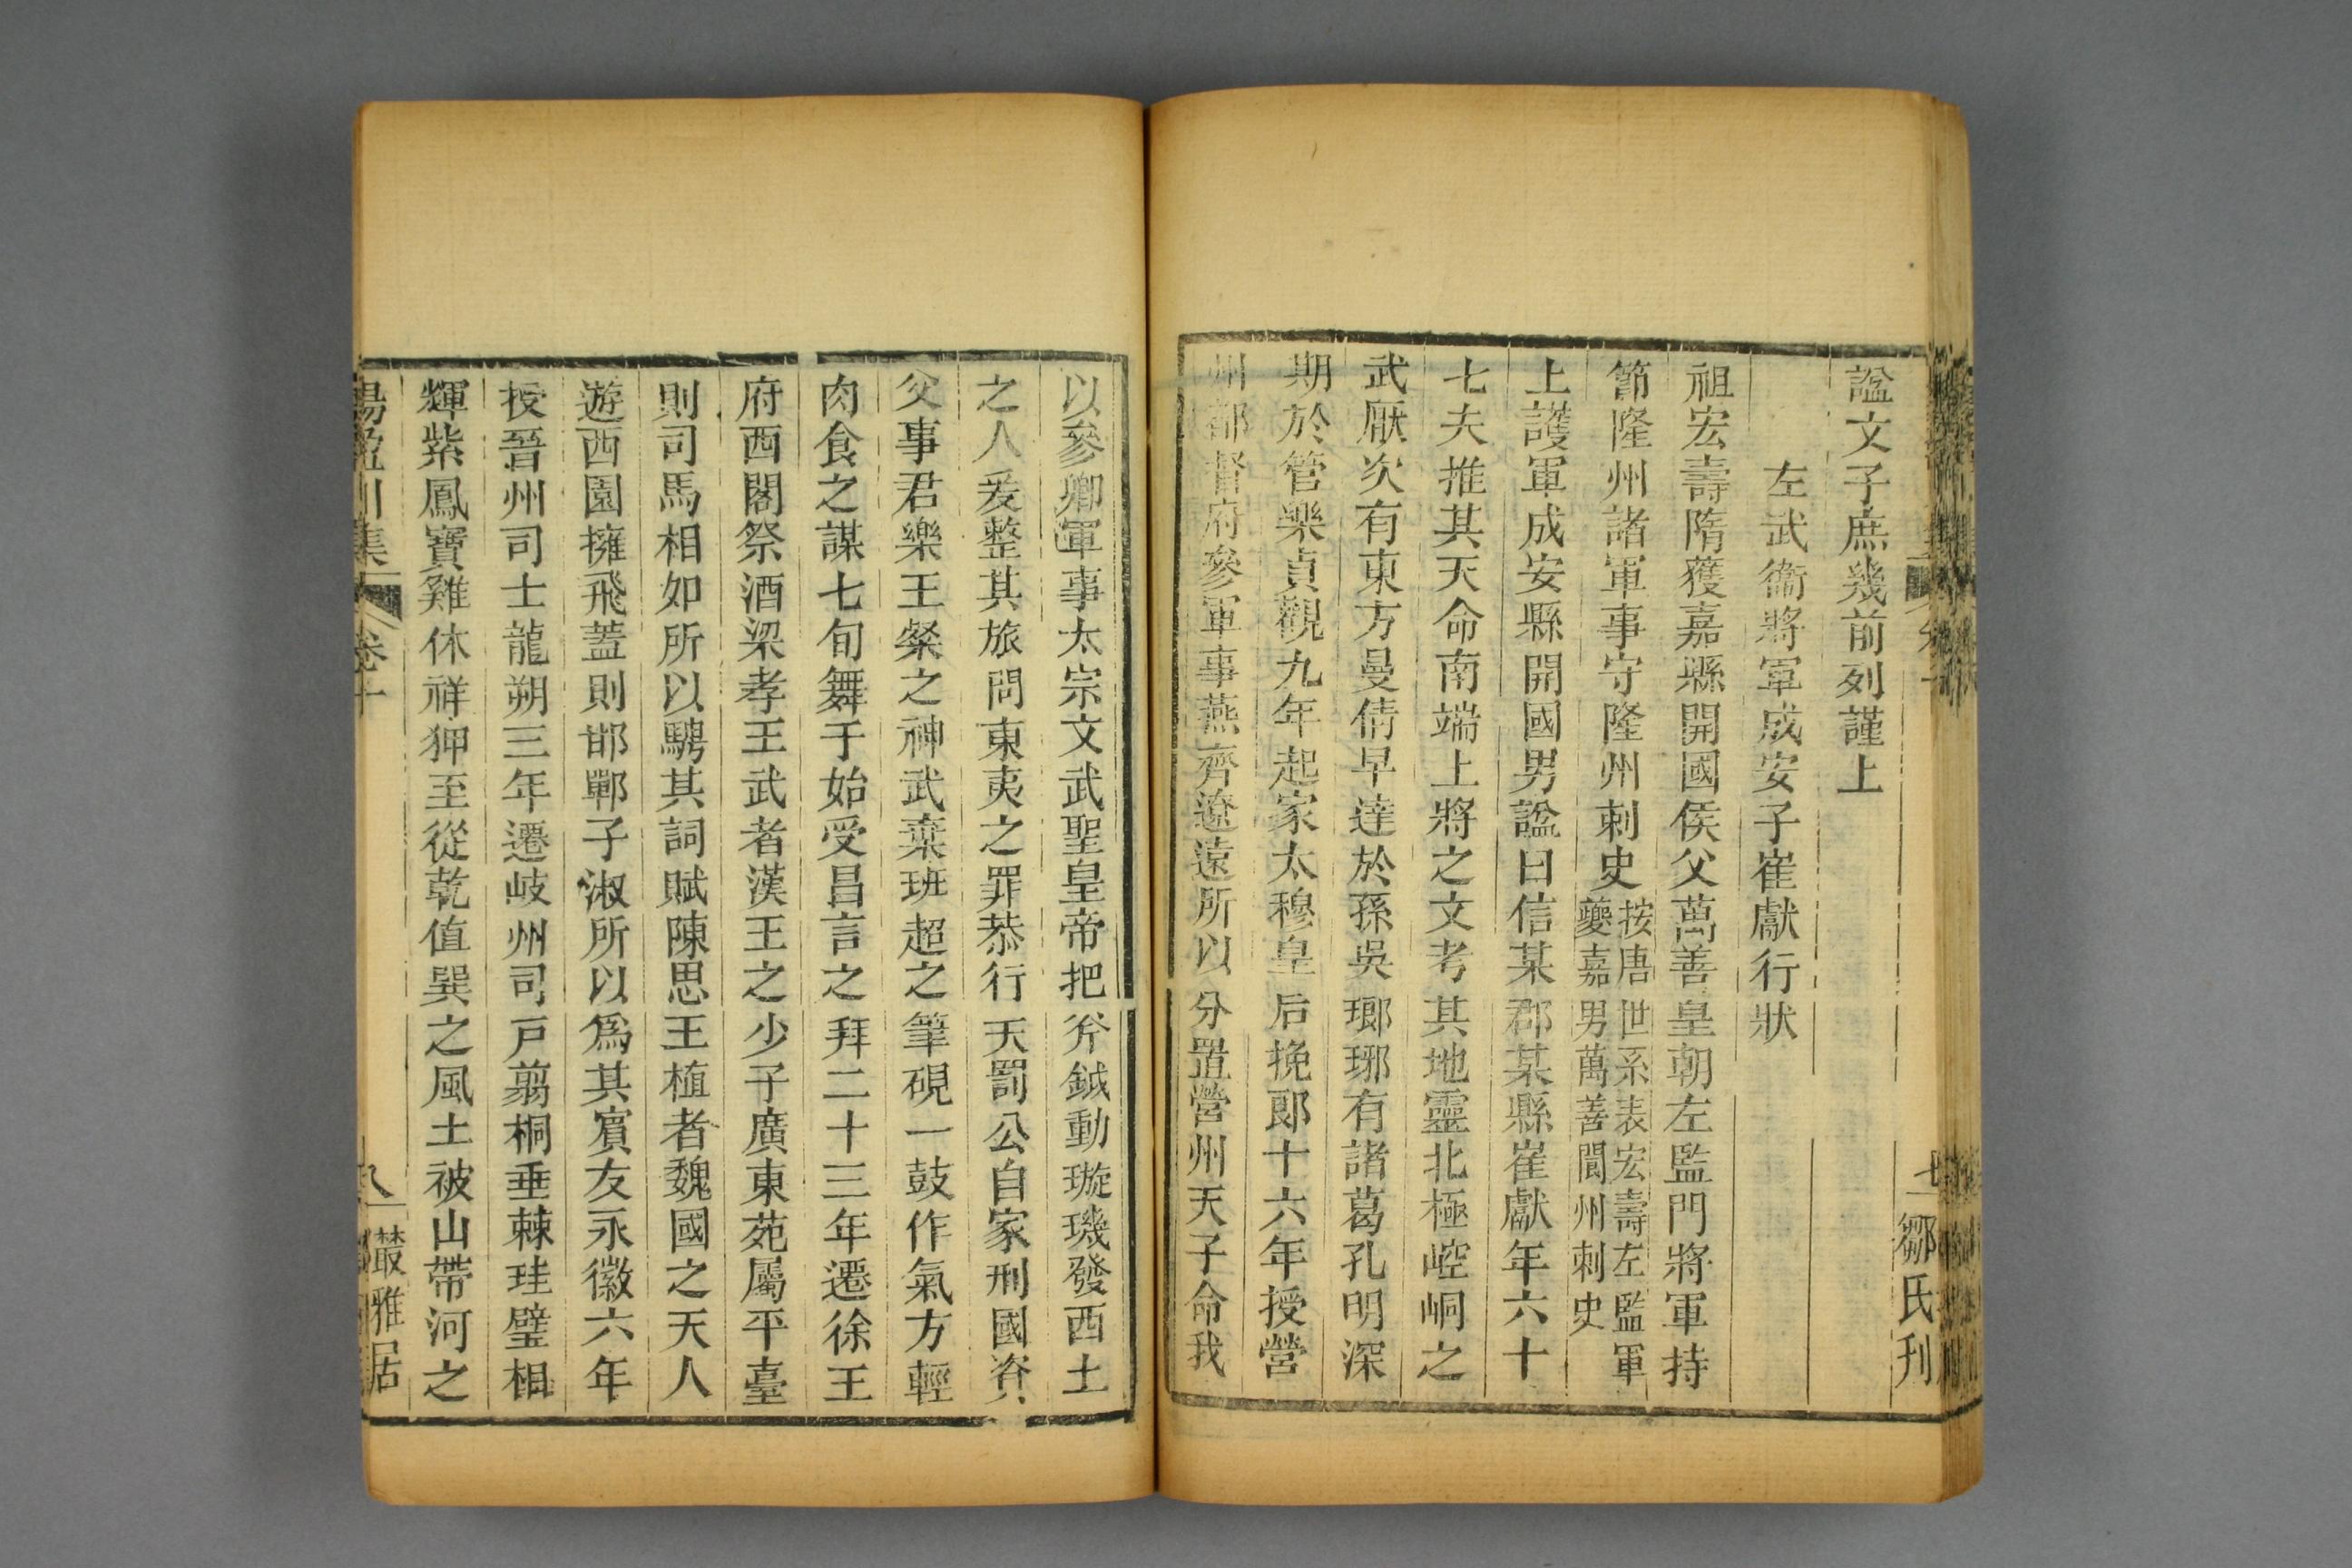 諡文子庶幾前列謹上
左武衞將軍成安子崔獻行狀
祖宏壽隋獲嘉縣開國侯父萬善皇朝左監門將軍持
節隆州諸軍事守隆州刺史按唐世系表宏壽左監軍
夔嘉男萬善閬州刺史
上護軍成安縣開國男諡曰信某郡某縣崔獻年六十
七夫推其天命南端上將之文考其地靈北極崆峒之
武厥次有東方曼倩早達於孫吳瑯琊有諸葛孔明深
期於管樂貞觀九年起家太穆皇后挽郎十六年授營
州都督府參軍事燕齊遼遠所以分置營州天子命我
七 鄒氏刊
以參卿軍事太宗文武聖皇帝把斧鉞動璇璣發西土
之人爰整其旅問東夷之罪恭行天罰公自家刑國資
父事君樂王粲之神武棄班超之筆硯一鼓作氣方輕
肉食之謀七旬舞干始受昌言之拜二十三年遷徐王
府西閤祭酒梁孝王武者漢王之少子廣東苑屬平臺
則司馬相如所以騁其詞賦陳思王植者魏國之天人
遊西園擁飛蓋則邯鄲子淑所以爲其賓友永徽六年
授晉州司士龍朔三年遷岐州司戸翦桐垂棘珪璧相
輝紫鳳寶雞休祥狎至從乾值巽之風土被山帶河之
楊盈川集 卷十 八 叢雅居